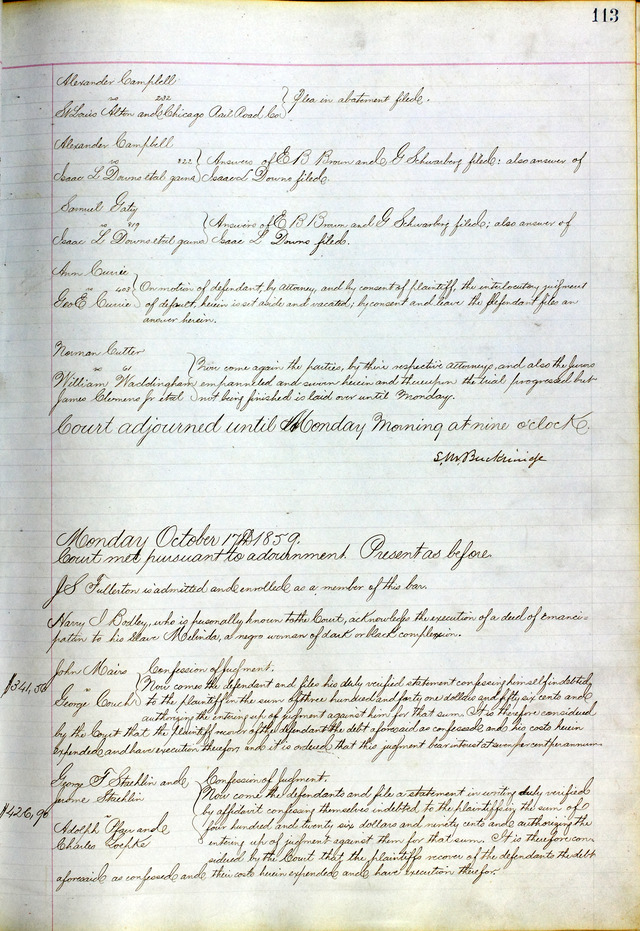 113
Alexander Campbell
vs 232 } Plea in abatement filed.
St Louis Alton and Chicago Rail Road Co
Alexander Campbell
vs 322 } Answers of E B Brown and G Schwarberg filed: also answer of
Isaac L Downs etal garns } Isaac L Downs filed.
Samuel Gaty
vs 319 } Answers of E B Brown and G Schwarberg filed; also answer of
Isaac L Downs etal garns } Isaac L Downs filed.
Ann Currie
vs 403 } On motion of defendant, by attorney, and by consent of plaintiff, the interlocutory judgment
Geo E Currie } of default, herein is set aside and vacated; by consent and leave the defendant files an
answer herein.
Norman Cutter
vs 61 } Now come again the parties, by their respective attorneys, and also the Jurors
William Waddingham empannelled and sworn herein and thereupon the trial progressed but
James Clemens Jr etal } not being finished is laid over until Monday.
Court adjourned until Monday Morning at nine o'clock.
Monday October 17th 1859.
Court met pursuant to adournment. Present as before.
J S Fullerton is admitted and enrolled as a member of this bar.
Harry I Bodley, who is personally known to the Court, acknowledges the execution of a deed of emanci-
pation to his Slave Melinda, a negro woman of dark or black complexion.
John Mairs } Confession of Judgment.
$341,56 vs } Now come the defendant and files his duly verified statement confessing himself indebted
George Couch } to the plaintiff in the sum of three hundred and forty one dollars and fifty six cents and
authorizing the entering up of judgment against him for that sum. It is therefore considered
by the Court that the plaintiff recover of the defendant the debt aforesaid as confessed and his costs herein
expended and have execution therefor, and it is ordered that this judgment bear interest at ten per cent per annum.
George F Staehlin and } Confession of Judgment.
Jerome Staehlin } Now come the defendants and file a statement in writing duly verified
$426,90 vs } by affidavit confessing themselves indebted to the plaintiffs in the sum of
Adolph Pfger and } four hundred and twenty six dollars and ninety cents and authorizing the
Charles Loepke } entering up of judgment against them for that sum. It is therefore con-
sidered by the Court that the plaintiffs recover of the defendants the debt
aforesaid as confessed and their costs herein expended and have execution therefor.